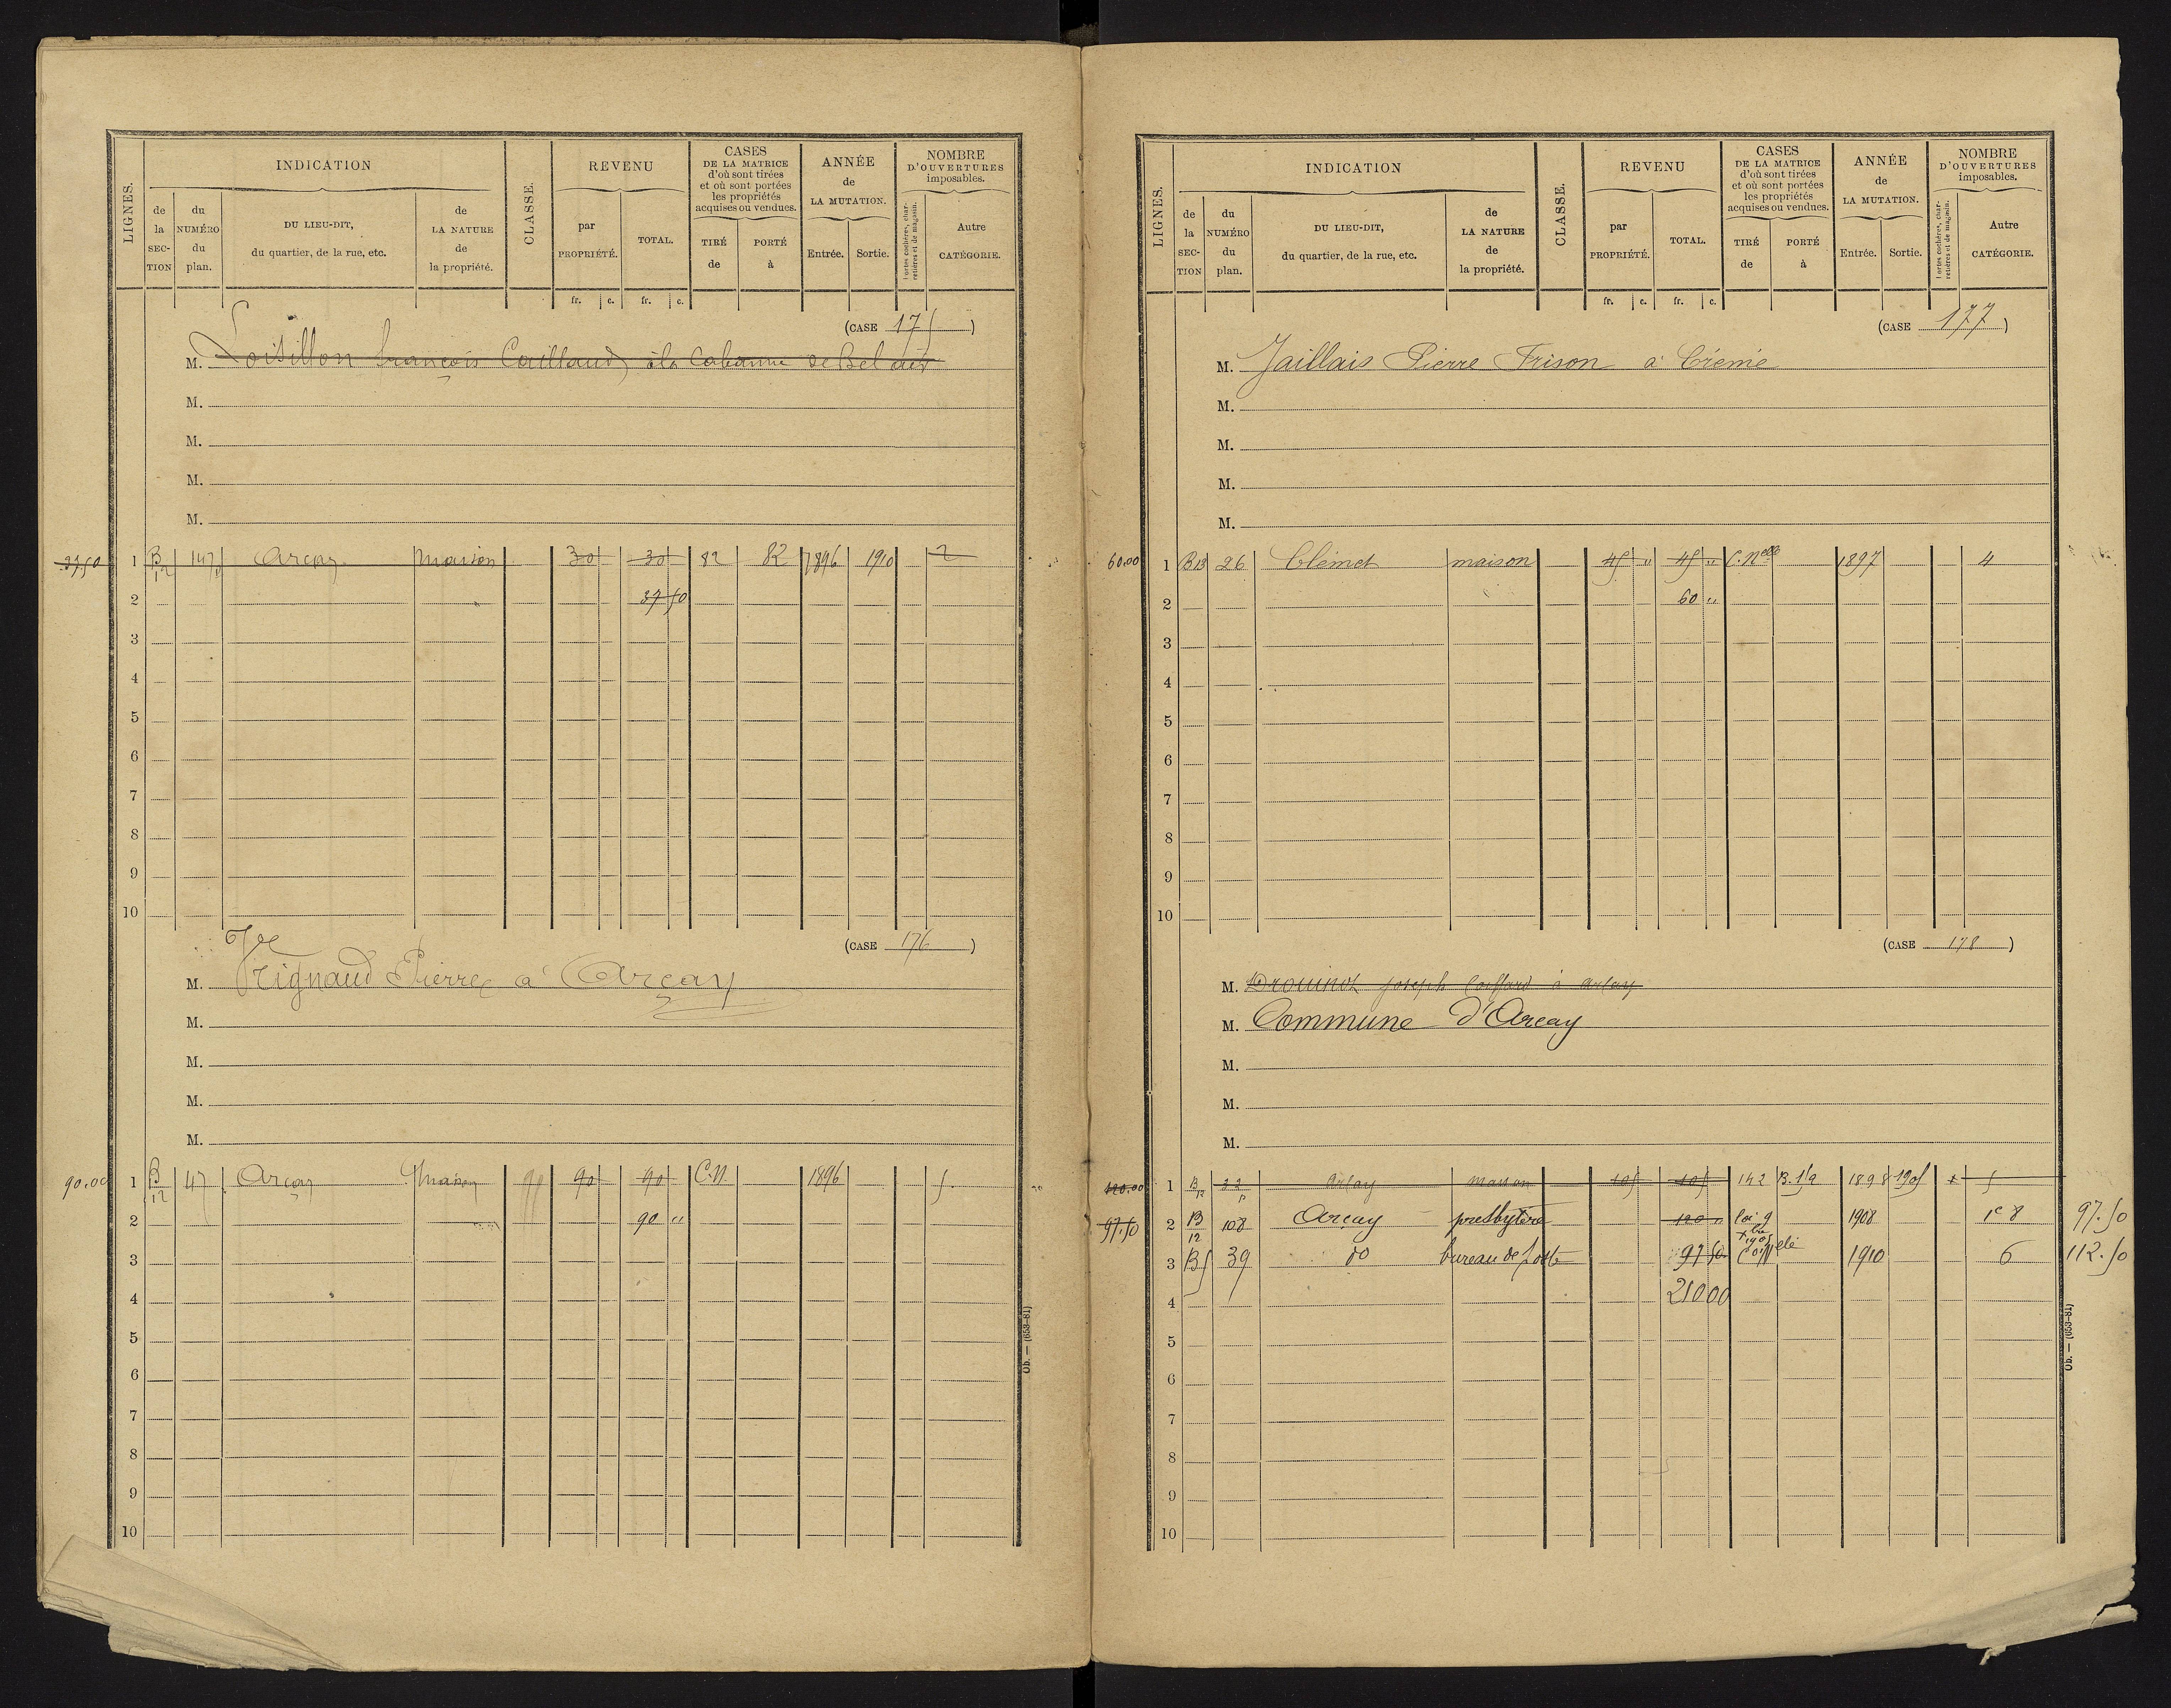 LIGNES.
INDICATION
CLASSE.
REVENU
CASES
DE LA MATRICE
d'où sont tirées
et où sont portées
les propriétés
acquises ou vendues.
ANNÉE
de
LA MUTATION.
NOMBRE
D'OUVERTURES
imposables.
de la SECTION
du NUMÉRO du plan.
DU LIEU-DIT,
du quartier, de la rue, etc.
de LA NATURE de la propriété.
par PROPRIÉTÉ.
TOTAL.
TIRÉ de
PORTÉ à
Entrée.
Sortie.
Portes cochères, charretières et de magasin.
Autre CATÉGORIE.
fr. c. fr. c.
(CASE 175)
M. Loisillon françois Caillaud à la Cabanne de Bel air
M.
M.
M.
M.
37.50 1 B 12 147 Arçay maison 30 30 82 82 1896 1910 2
2 37 50
3
4
5
6
7
8
9
10
(CASE 176)
Vve
M. Rignaud Pierre à Arçay
M.
M.
M.
M.
90.00 1 B 12 47 Arçay Maison 90 90 C.N. 1896 5
2 90 "
3
4
5
6
7
8
9
10
Ob. — (653-81)
LIGNES.
INDICATION
CLASSE.
REVENU
CASES
DE LA MATRICE
d'où sont tirées
et où sont portées
les propriétés
acquises ou vendues.
ANNÉE
de
LA MUTATION.
NOMBRE
D'OUVERTURES
imposables.
de la SECTION
du NUMÉRO du plan.
DU LIEU-DIT,
du quartier, de la rue, etc.
de LA NATURE de la propriété.
par PROPRIÉTÉ.
TOTAL.
TIRÉ de
PORTÉ à
Entrée.
Sortie.
Portes cochères, charretières et de magasin.
Autre CATÉGORIE.
fr. c. fr. c.
(CASE 177)
M. Jaillais Pierre Frison à
M.
M.
M.
M.
60.00 1 B13 26 Clémet maison 45 " 45 " C. Nelle 1897 4
2 60 "
3
4
5
6
7
8
9
10
(CASE 178)
M. Drouinot joseph à Arçay
M. Commune d'Arçay
M.
M.
M.
120.00 1 B 12 22 p Arçay maison 105 105 142 1898 1905 5
97.50 2 B 12 108 Arçay presbytère 120 " loi 9 Xbre 1905 1908 1c 8 97.50
3 B5 39 do bureau de poste 97 50 1910 6 112.50
4 210 00
5
6
7
8
9
10
Ob. — (653-81)